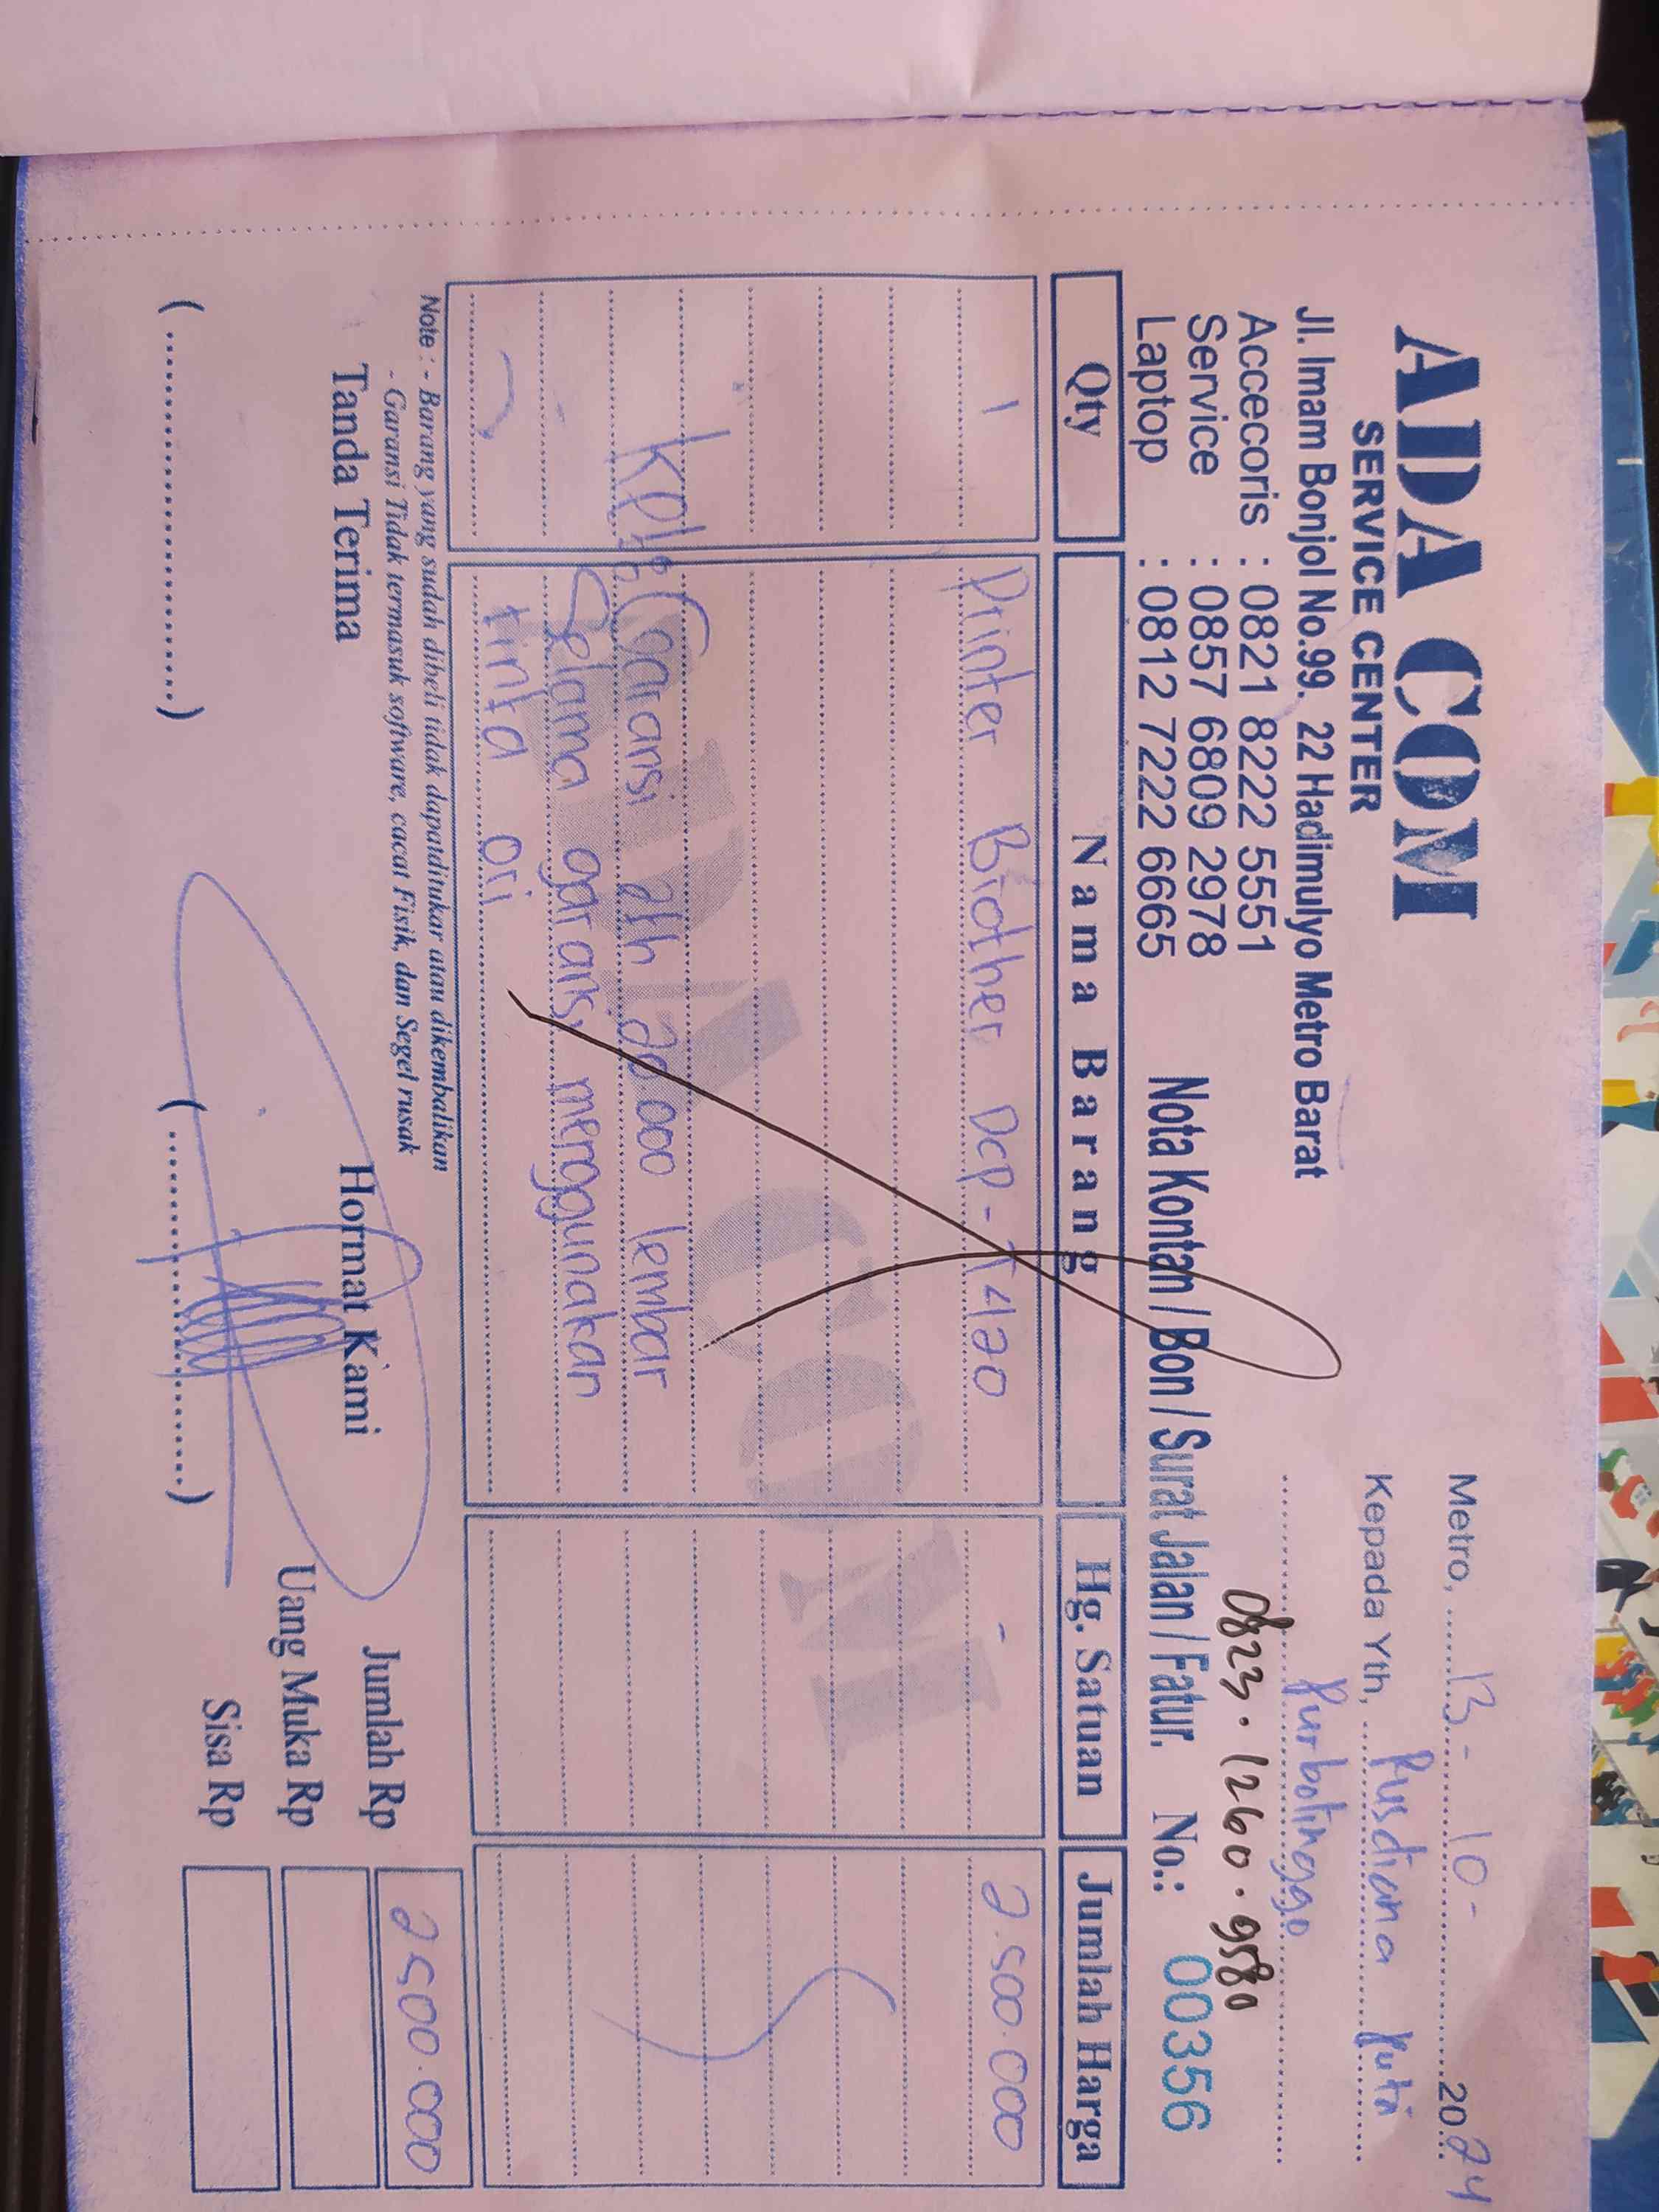 ADA COM
SERVICE CENTER
Jl. Imam Bonjol No.99. 22 Hadimulyo Metro Barat
Accecoris : 0821 8222 5551
Service : 0857 6809 2978
Laptop : 0812 7222 6665
Metro, 13-10-2024
Kepada Yth, Pusdiana Putri
Purbolinggo
0823.1260.9580
Nota Kontan / Bon / Surat Jalan / Fatur. No.: 00356
Qty Nama Barang Hg. Satuan Jumlah Harga
1 Printer Brother DCP-T420 - 2.500.000
ADA COM
Garansi 2th 20.000 lembar
Selama garansi menggunakan
tinta ori
Note : - Barang yang sudah dibeli tidak dapat ditukar atau dikembalikan
- Garansi Tidak termasuk software, cacat Fisik, dan Segel rusak
Tanda Terima Hormat Kami
Jumlah Rp 2500.000
Uang Muka Rp
Sisa Rp
(........................) (........................)